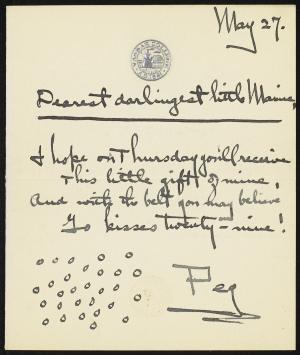 May 27.
Dearest darlingest little Mamie,
I hope on Thursday you'll receive
This little gift of mine,
And with the belt you may believe
Go kisses twenty-nine!
Peg